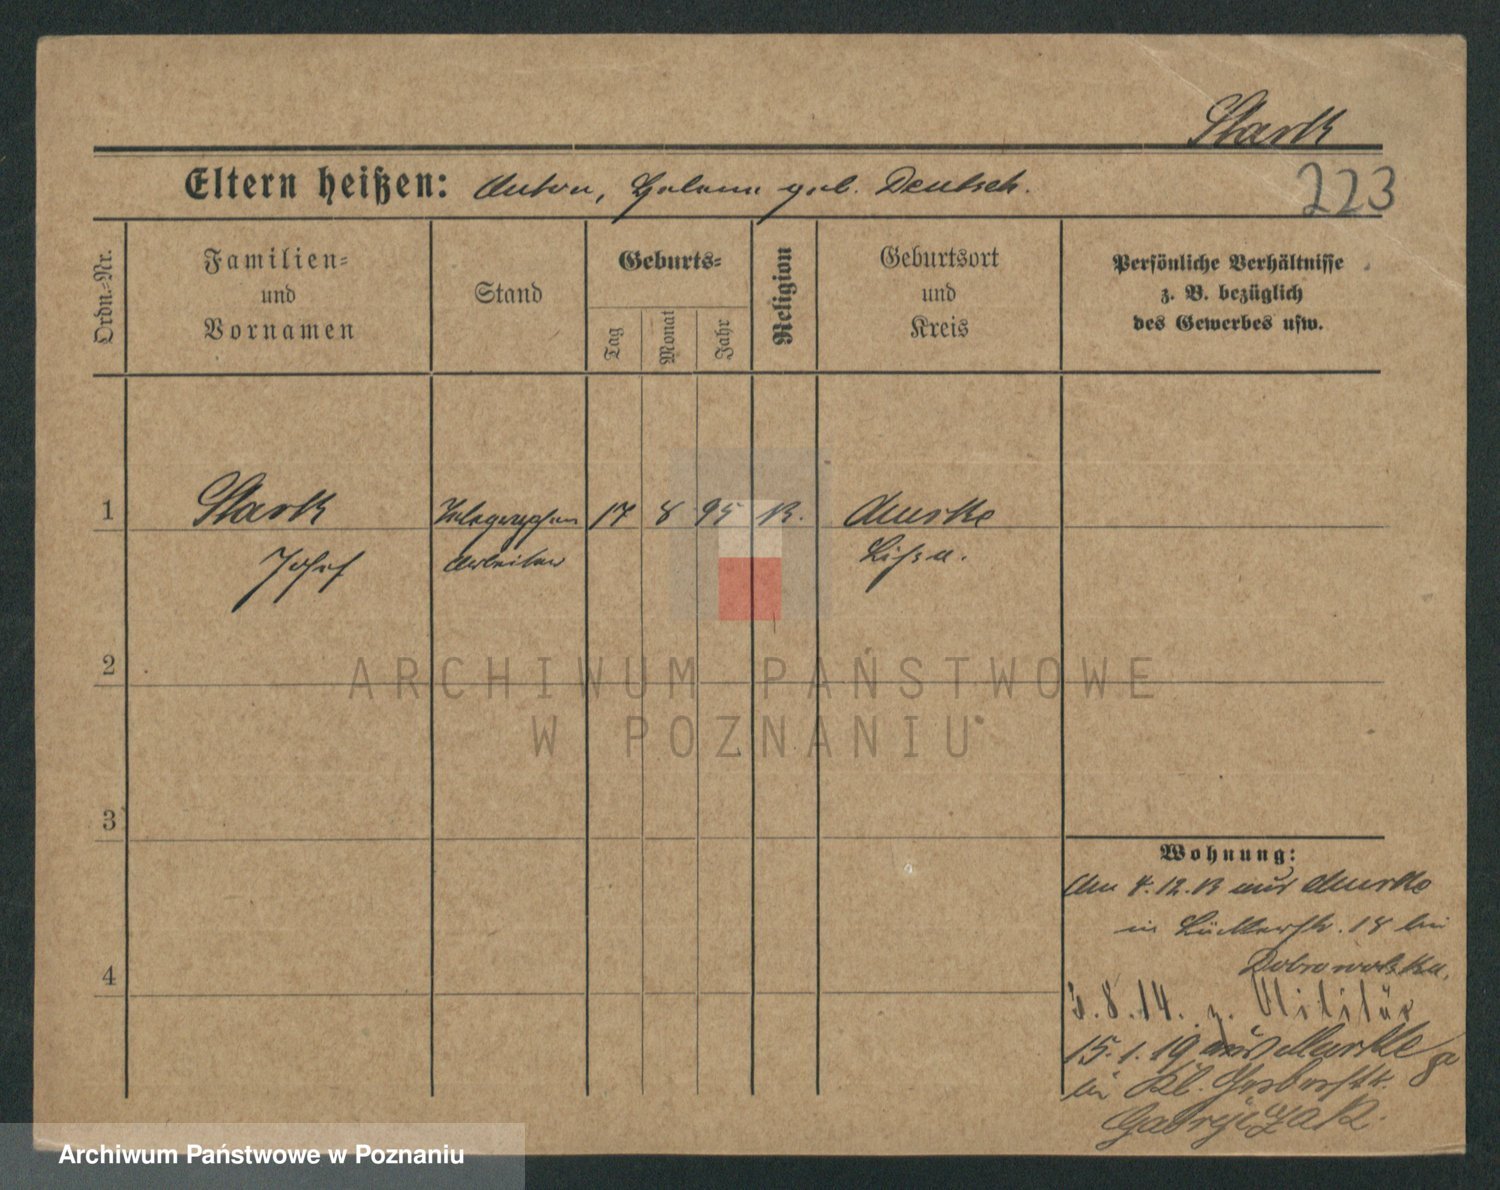 Stark
Eltern heißen: Anton, Helene geb. Deutsch.
223
Ordn.-Nr.
Familien-
und
Vornamen
Stand
Geburts-
Tag
Monat
Jahr
Religion
Geburtsort
und
Kreis
Persönliche Verhältnisse
z. B. bezüglich
des Gewerbes usw.
1
Stark
Telegraphen
17 8 95 K.
Murke
Josef
Arbeiter
Lissa.
2
ARCHIWUM PAŃSTWOWE
W POZNANIU
3
Wohnung:
Am 4.12.13 aus Murke
in 18 bei
Dobrowolska.
4
3.8.14. z. Militär
15.1.19 aus Murke
in Kl. Gerberstr.
Archiwum Państwowe w Poznaniu